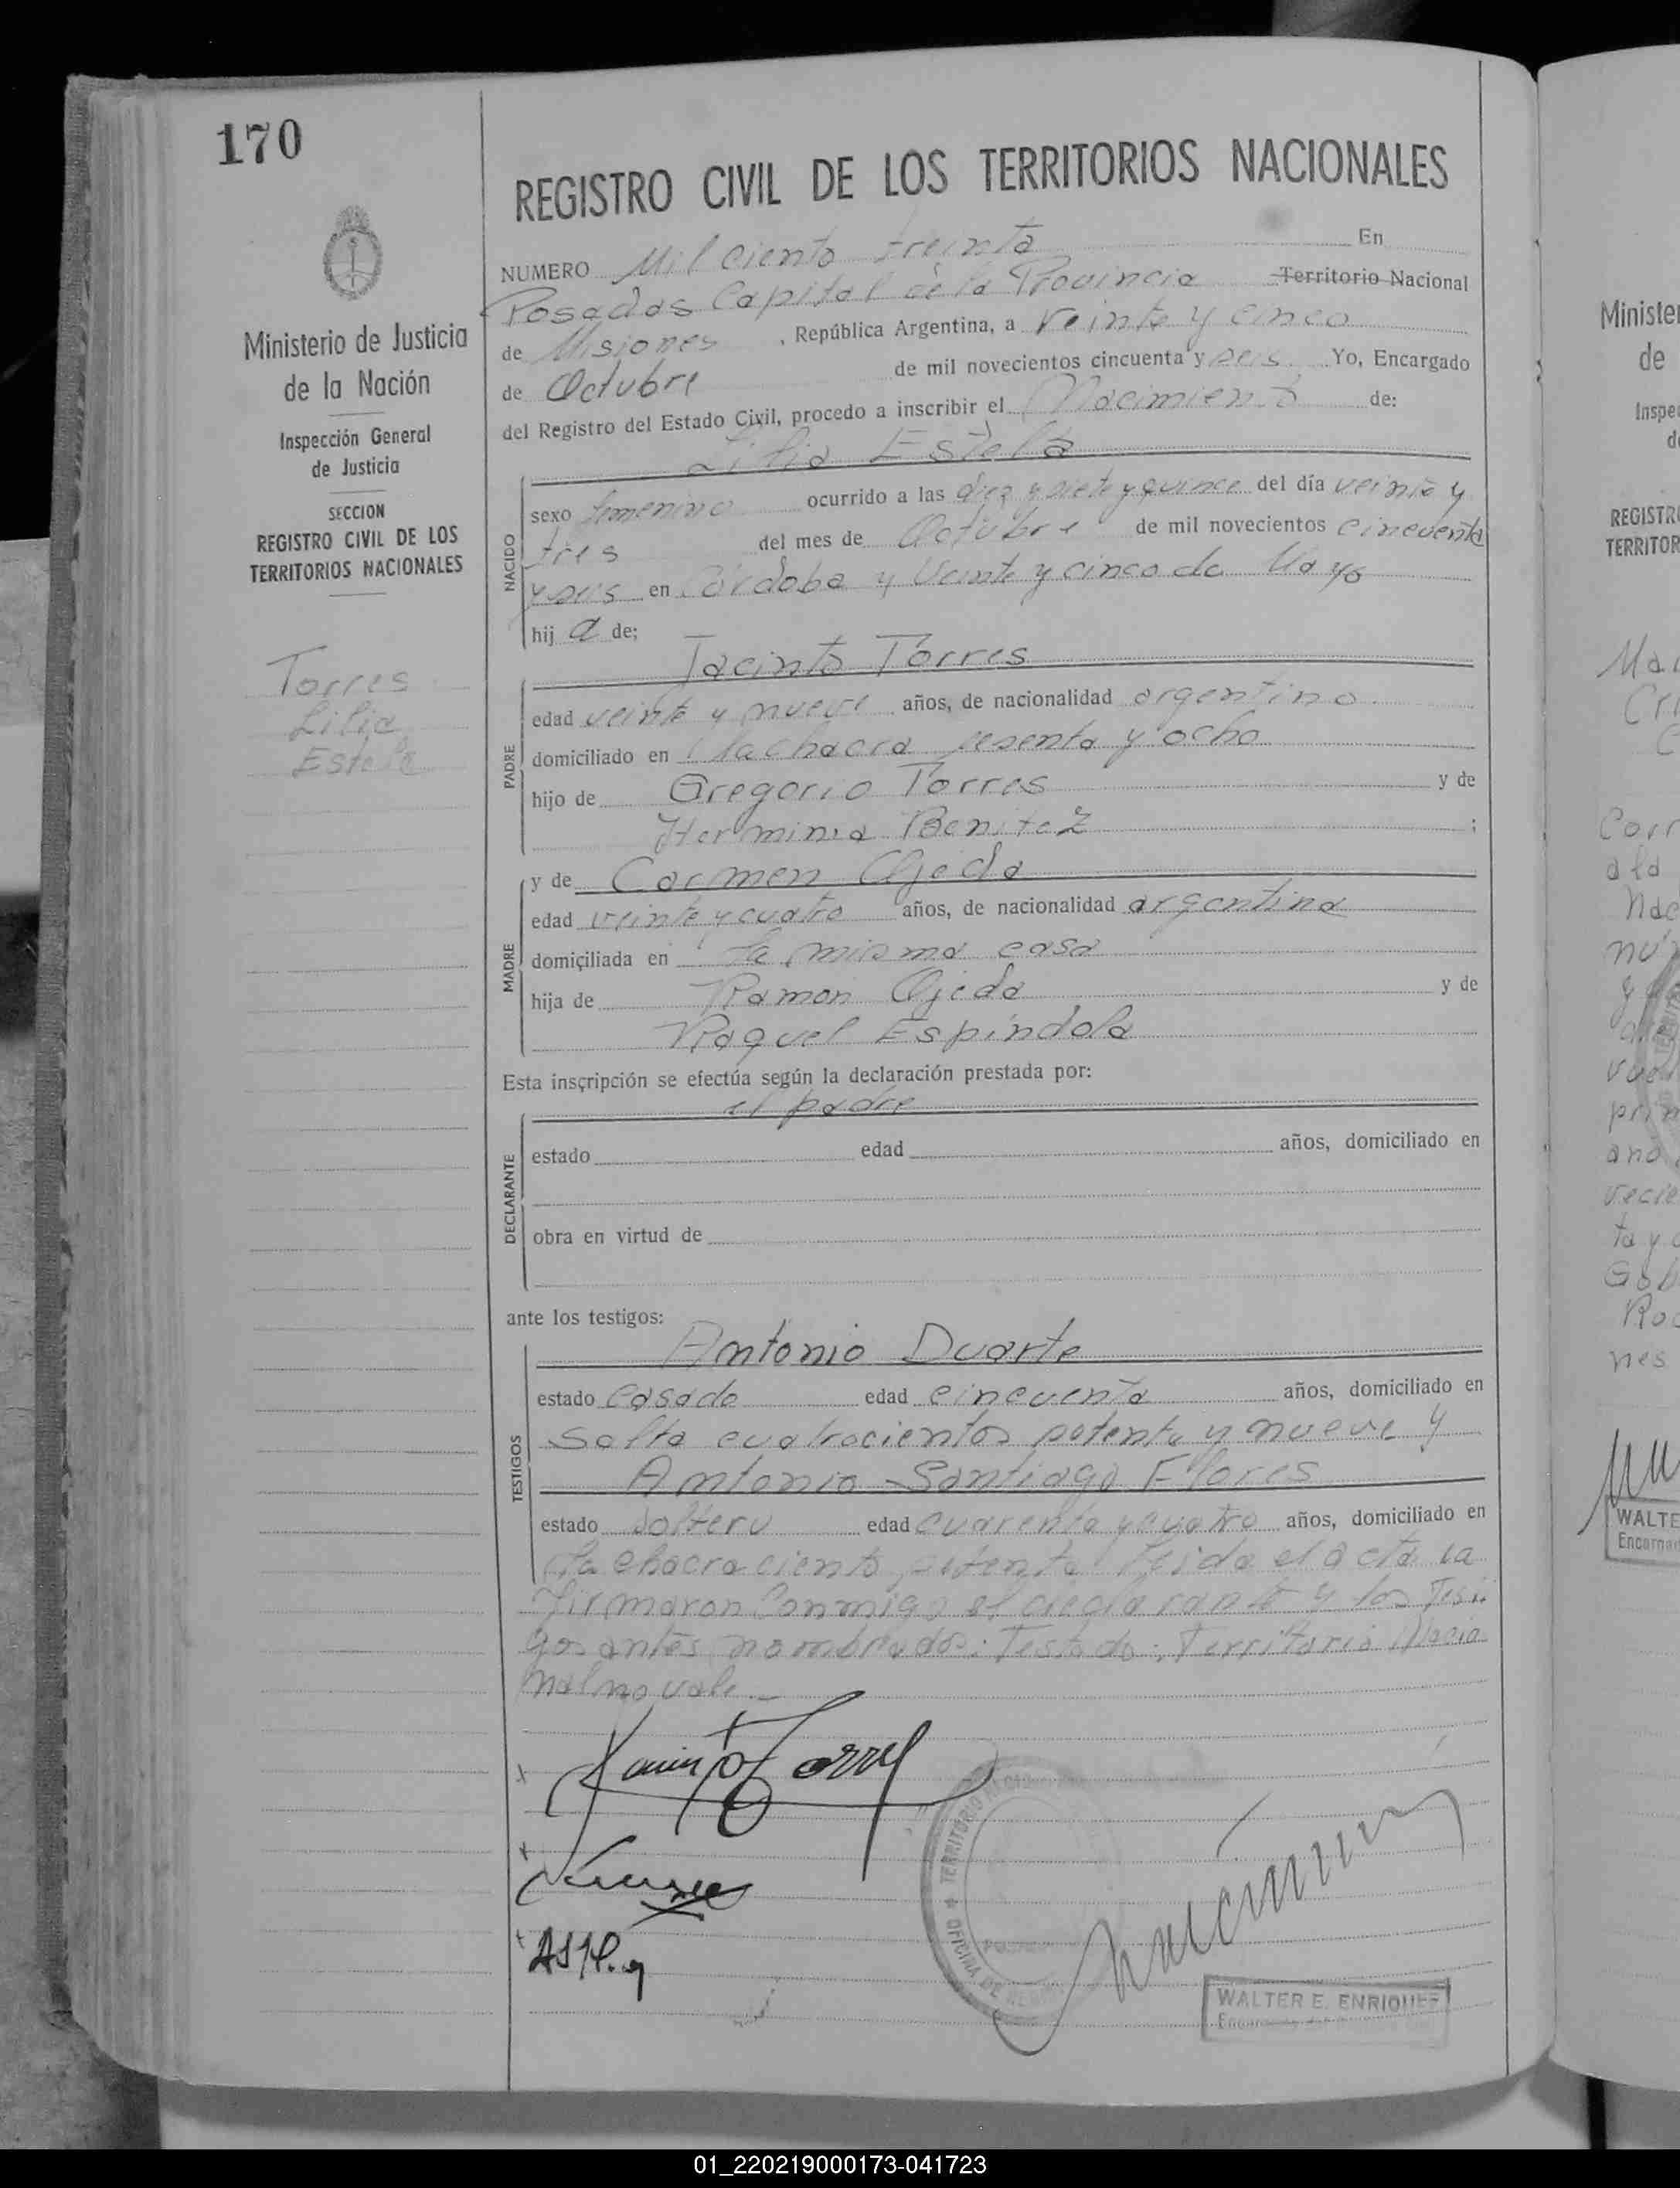 170
Ministerio de Justicia
de la Nación
Inspección General
de Justicia
SECCION
REGISTRO CIVIL DE LOS
TERRITORIOS NACIONALES
Torres
Lilia
Estela
REGISTRO CIVIL DE LOS TERRITORIOS NACIONALES
NUMERO Mil ciento treinta En
Posadas Capital de la Provincia Territorio Nacional
de Misiones, República Argentina, a veinte y cinco
de Octubre de mil novecientos cincuenta y seis Yo, Encargado
del Registro del Estado Civil, procedo a inscribir el Nacimiento de:
Lilia Estela
NACIDO
sexo femenino ocurrido a las diez y siete y quince del día veinte y
tres del mes de Octubre de mil novecientos cincuenta
y seis en Córdoba y Veinte y cinco de Mayo
hija de;
Jacinto Torres
PADRE
edad veinte y nueve años, de nacionalidad argentino
domiciliado en la chacra sesenta y ocho
hijo de Gregorio Torres y de
Herminia Benitez ;
MADRE
y de Carmen Ojeda
edad veinte y cuatro años, de nacionalidad argentina
domiciliada en la misma casa
hija de Ramon Ojeda y de
Raquel Espindola
Esta inscripción se efectúa según la declaración prestada por:
el padre
DECLARANTE
estado edad años, domiciliado en
obra en virtud de
ante los testigos:
Antonio Duarte
TESTIGOS
estado casado edad cincuenta años, domiciliado en
Salta cuatrocientos setenta y nueve y
Antonio Santiago Flores
estado soltero edad cuarenta y cuatro años, domiciliado en
la chacra ciento setenta leida el acta la
firmaron conmigo el declarante y los testi
gos antes nombrados: Testado: Territorio Nacio
nal no vale.-
TERRITORIO
OFICINA DE
WALTER E. ENRIQUEZ
Ministe
de
Inspe
d
REGISTR
TERRITOR
WALTE
Encarna
01_220219000173-041723